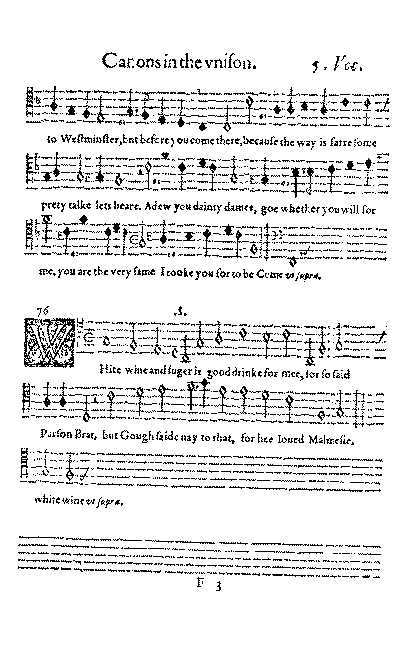 Canons in the vnison. 5. Voc.
to Westminster, but before you come there, because the way is farre some
pretty talke lets heare. Adew you dainty dames, goe whether you will for
me, you are the very same I tooke you for to be Come vt supra.
76 .S.
WHite wine and suger is good drinke for mee, for so said
Parson Brat, but Gough saide nay to that, for hee loued Malmesie.
white wine vt supra.
F 3